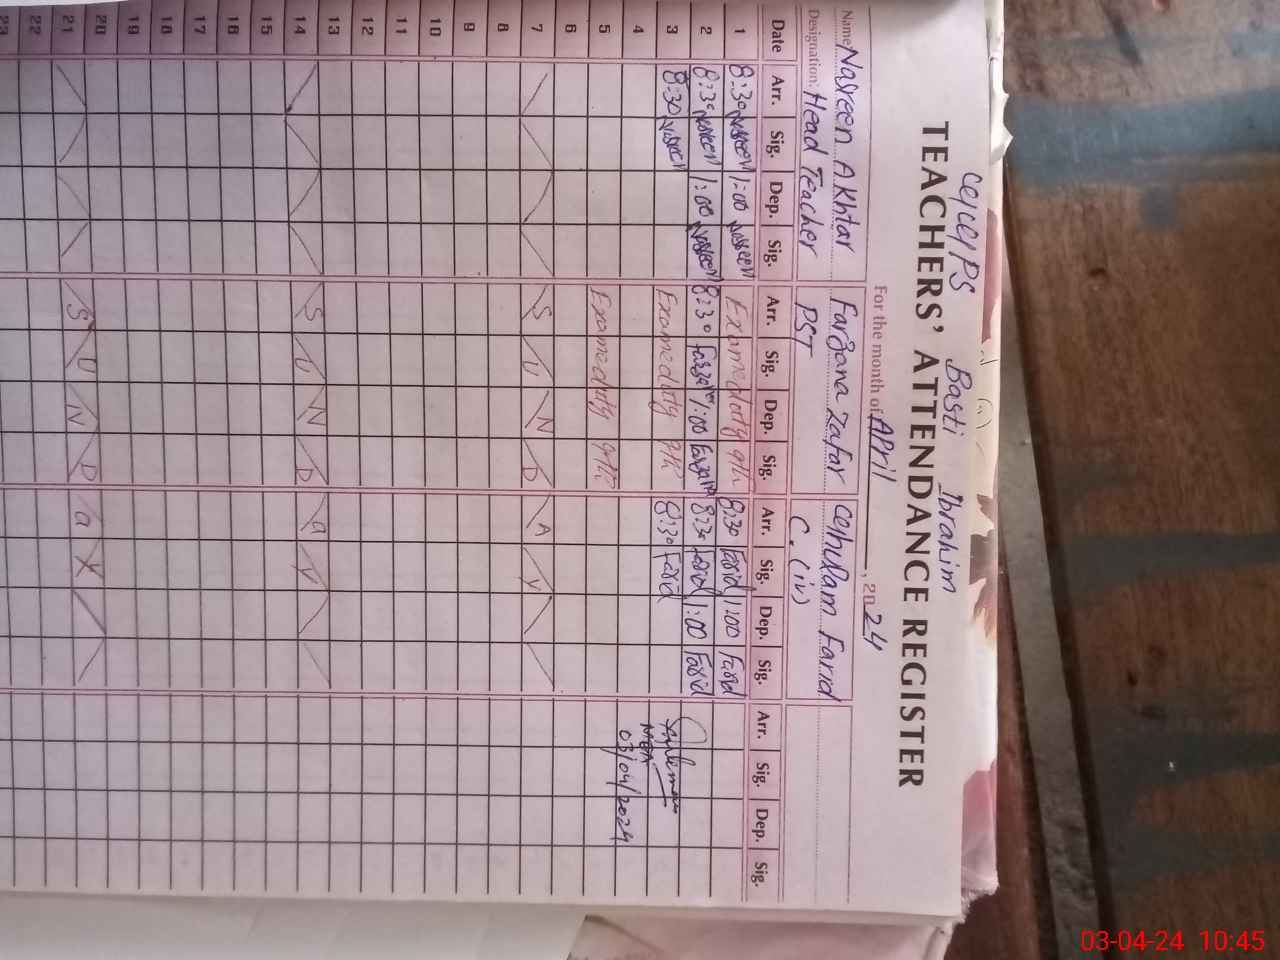 GGPS Basti Ibrahim
TEACHERS' ATTENDANCE REGISTER
For the month of APril, 2024
Name Nasreen Akhtar Farzana Zafar Ghulam Farid
Designation: Head Teacher PST C.(iv)
Date Arr. Sig. Dep. Sig. Arr. Sig. Dep. Sig. Arr. Sig. Dep. Sig. Arr. Sig. Dep. Sig.
1 8:30 Nasreen 1:00 Nasreen Exam eduty 9th 8:30 Farid 1:00 Farid
2 8:30 Nasreen 1:00 Nasreen 8:30 Farzana 1:00 Farzana 8:30 Farid 1:00 Farid
3 8:30 Nasreen Exam eduty 9th 8:30 Farid
4 MEA
03/04/2024
5 Exam eduty 9th
6
7 S U N D A Y
8
9
10
11
12
13
14 S U N D a Y
15
16
17
18
19
20
21 S U N D a Y
22
23
03-04-24 10:45